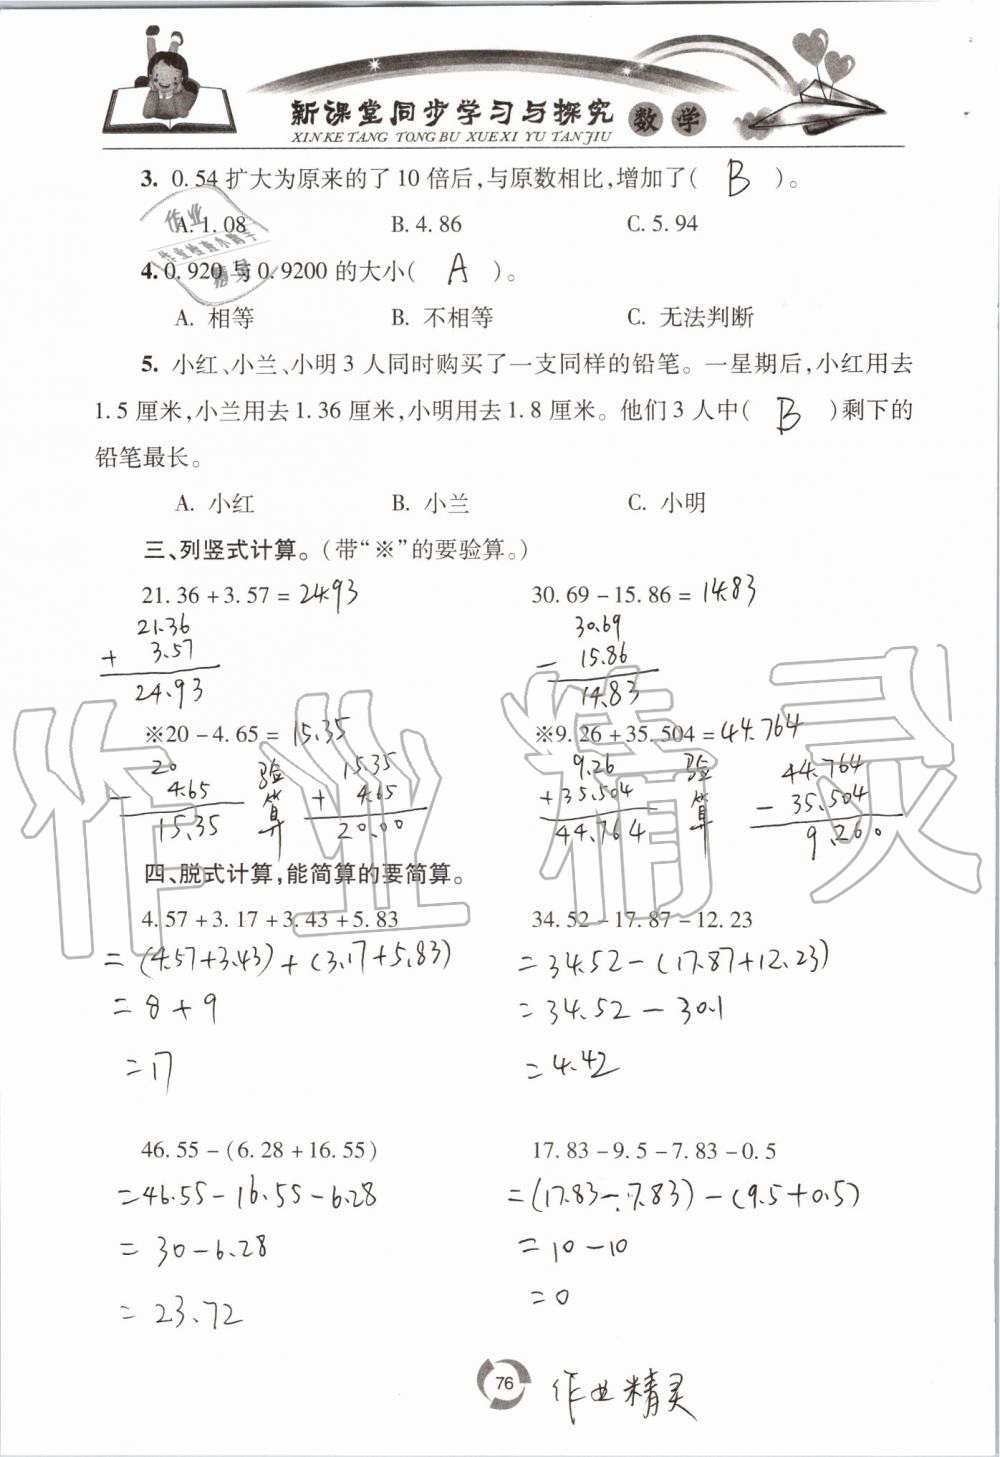 新课堂同步学习与探究 数学
XIN KE TANG TONG BU XUEXI YU TANJIU
3. 0.54扩大为原来的了10倍后,与原数相比,增加了( B )。
A. 1.08 B. 4.86 C. 5.94
4. 0.920与0.9200的大小( A )。
A. 相等 B. 不相等 C. 无法判断
5. 小红、小兰、小明3人同时购买了一支同样的铅笔。一星期后,小红用去
1.5厘米,小兰用去1.36厘米,小明用去1.8厘米。他们3人中( B )剩下的
铅笔最长。
A. 小红 B. 小兰 C. 小明
三、列竖式计算。(带“※”的要验算。)
21.36+3.57=24.93 30.69-15.86=14.83
21.36 30.69
+ 3.57 - 15.86
24.93 14.83
※20-4.65=15.35 ※9.26+35.504=44.764
20 验算 15.35 9.26 验算 44.764
- 4.65 + 4.65 +35.504 - 35.504
15.35 20.00 44.764 9.260
四、脱式计算,能简算的要简算。
4.57+3.17+3.43+5.83 34.52-17.87-12.23
=(4.57+3.43)+(3.17+5.83) =34.52-(17.87+12.23)
=8+9 =34.52-30.1
=17 =4.42
46.55-(6.28+16.55) 17.83-9.5-7.83-0.5
=46.55-16.55-6.28 =(17.83-7.83)-(9.5+0.5)
=30-6.28 =10-10
=23.72 =0
76 作业精灵
作业精灵